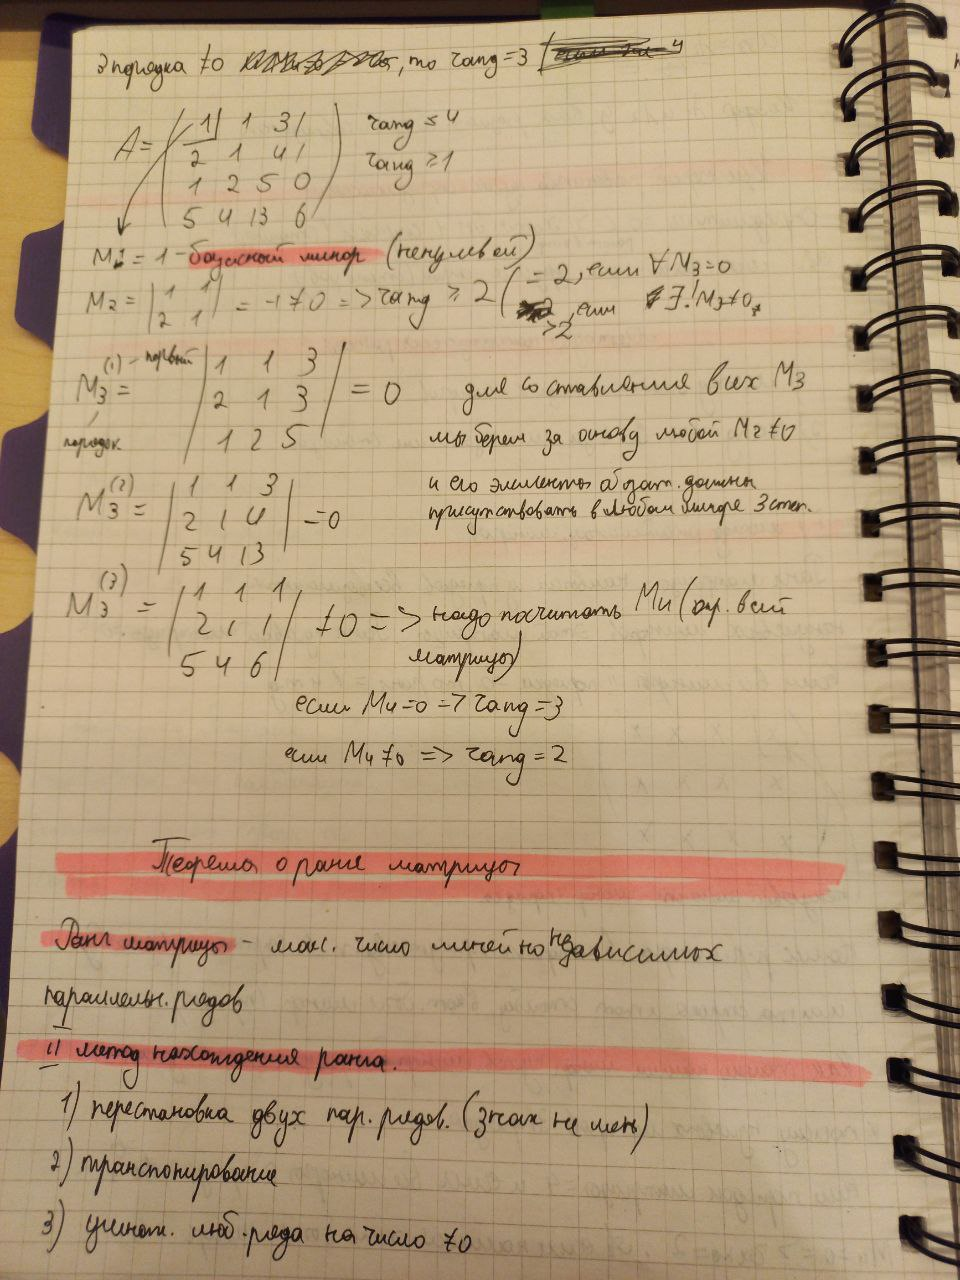 порядка ≠0, то rang=3
A= ( 1 1 3 1 ) rang ≤ 4
2 1 4 1 rang ≥ 1
1 2 5 0
5 4 13 6
M1 = 1 - базисный минор (ненулевой)
M2 = | 1 1 | = -1 ≠0 => rang ≥ 2 ( = 2, если ∀ M3=0
2 1 >2, если ∃! M3≠0
M3(1) - первый = | 1 1 3 | = 0 для составления всех M3
2 1 3
порядок 1 2 5 мы берем за основу любой M2≠0
M3(2) = | 1 1 3 | =0 и его элементы обязат. должны
2 1 4 присутствовать в любом миноре 3 степ.
5 4 13
M3(3) = | 1 1 1 | ≠0 => надо посчитать M4 (опр. всей
2 1 1
5 4 6 матрицы)
если M4=0 => rang=3
если M4≠0 => rang=2
Теорема о ранге матрицы
Ранг матрицы - макс. число линейно независимых
параллельн. рядов
II метод нахождения ранга.
1) перестановка двух пар. рядов. (знак не мен)
2) транспонирование
3) умнож. люб. ряда на число ≠0